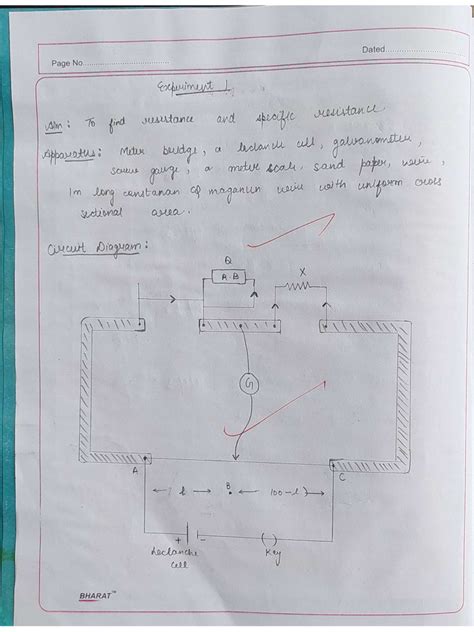 Dated
Page No.
Experiment 1
Aim : To find resistance and specific resistance
Apparatus : Meter bridge, a leclanche cell, galvanometer,
screw gauge, a meter scale, sand paper, wire,
1m long constanan wire with uniform cross
sectional area.
Circuit Diagram :
Q
X
R.B
G
A
l
B
100-l
C
+ -
Leclanche
Cell
Key
BHARAT™